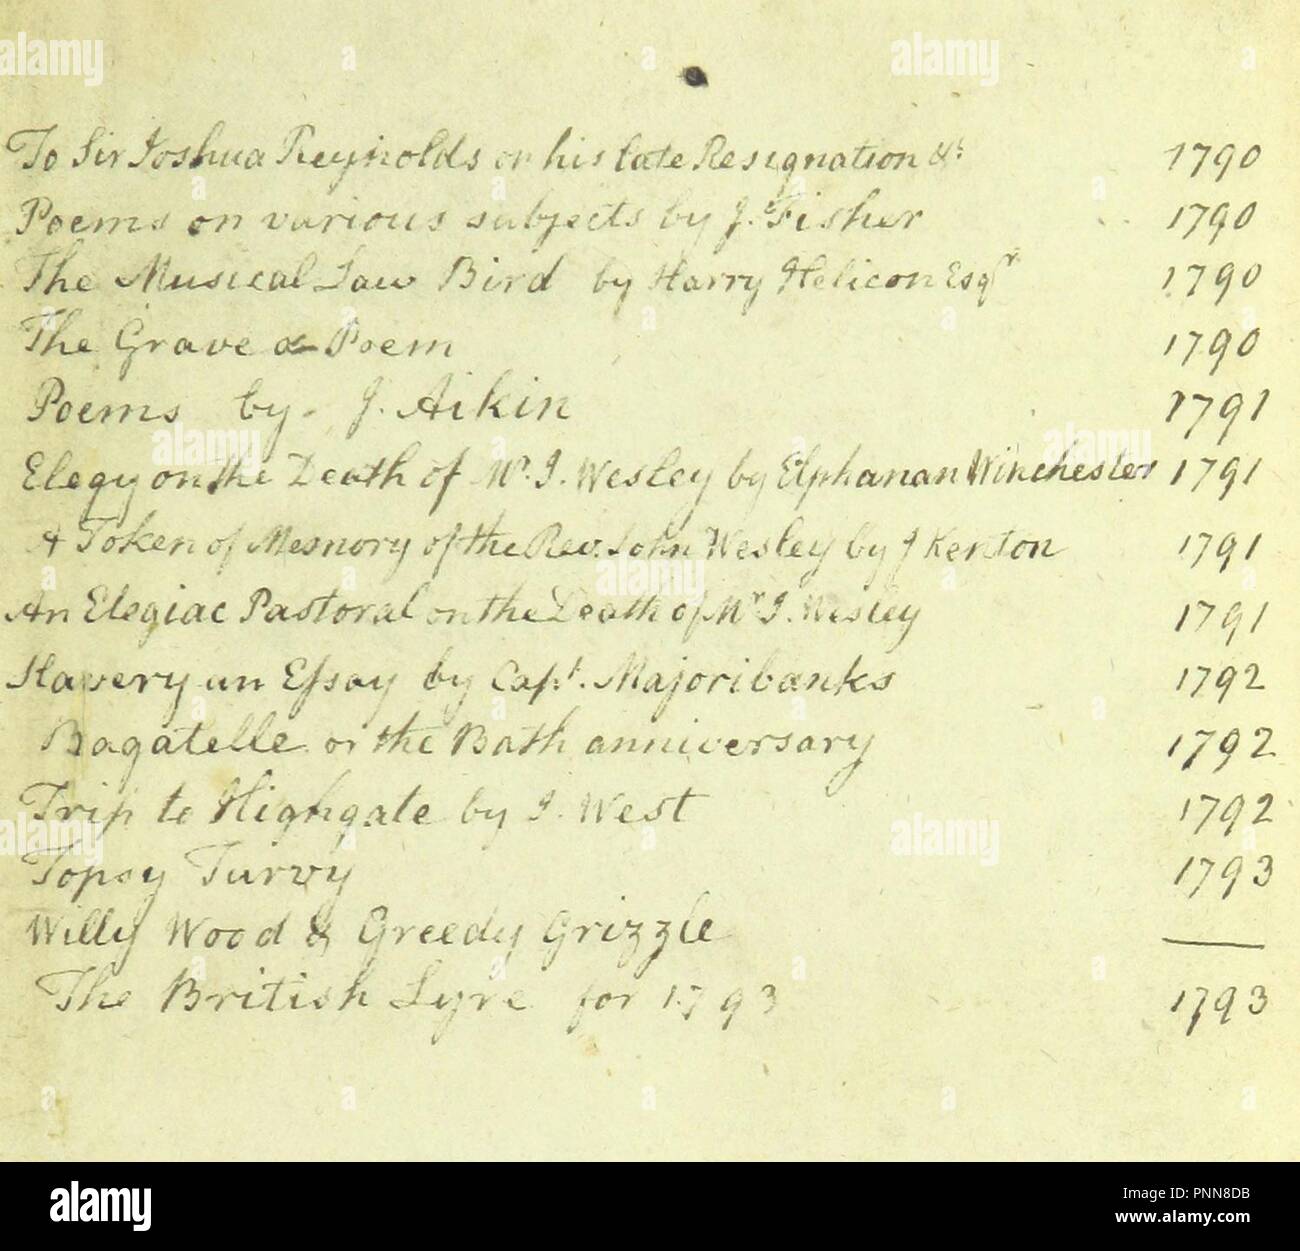 To Sir Joshua Reynolds on his late Resignation &c 1790
Poems on various subjects by J. Fisher 1790
The Musical Law Bird by Harry Helicon Esqr 1790
The Grave a Poem 1790
Poems by J. Aikin 1791
Elegy on the Death of Mr. J. Wesley by Elphanan Winchester 1791
A Token of Memory of the Rev. John Wesley by J Kenton 1791
An Elegiac Pastoral on the Death of Mr J. Wesley 1791
Slavery an Eſsay by Capt. Majoribanks 1792
Bagatelle or the Bath anniversary 1792
Trip to Highgate by J. West 1792
Topsy Turvy 1793
Willy Wood & Greedy Grizzle —
The British Lyre for 1793 1793
alamy
Image ID: PNN8DB
www.alamy.com